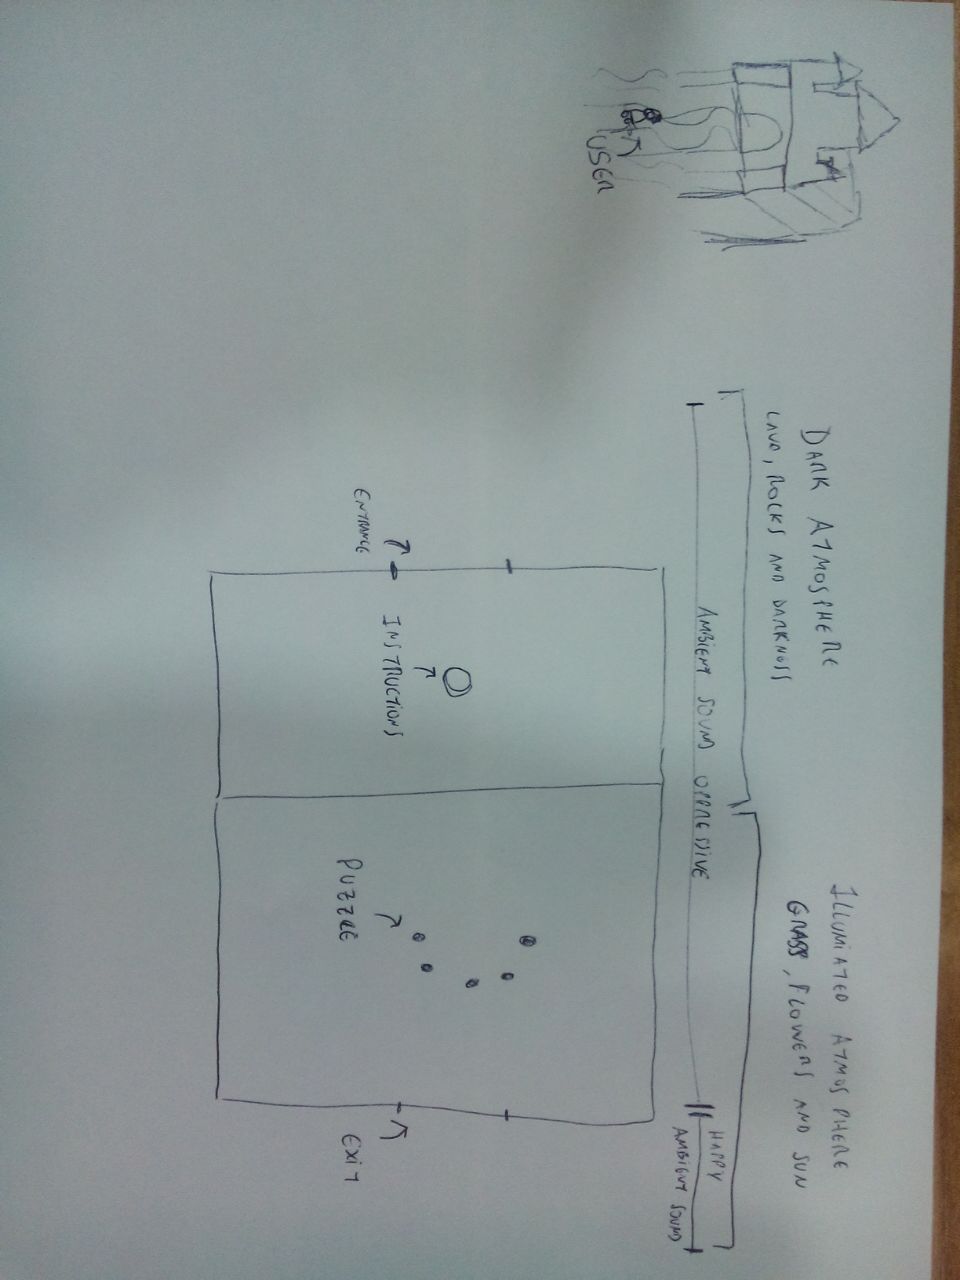 DARK ATMOSPHERE
LAVA, ROCKS AND DARKNESS
ILLUMIATED ATMOSPHERE
GRASS, FLOWERS AND SUN
AMBIENT SOUND OPPRESSIVE
HAPPY
AMBIENT SOUND
USER
ENTRANCE
INSTRUCTIONS
PUZZLE
EXIT